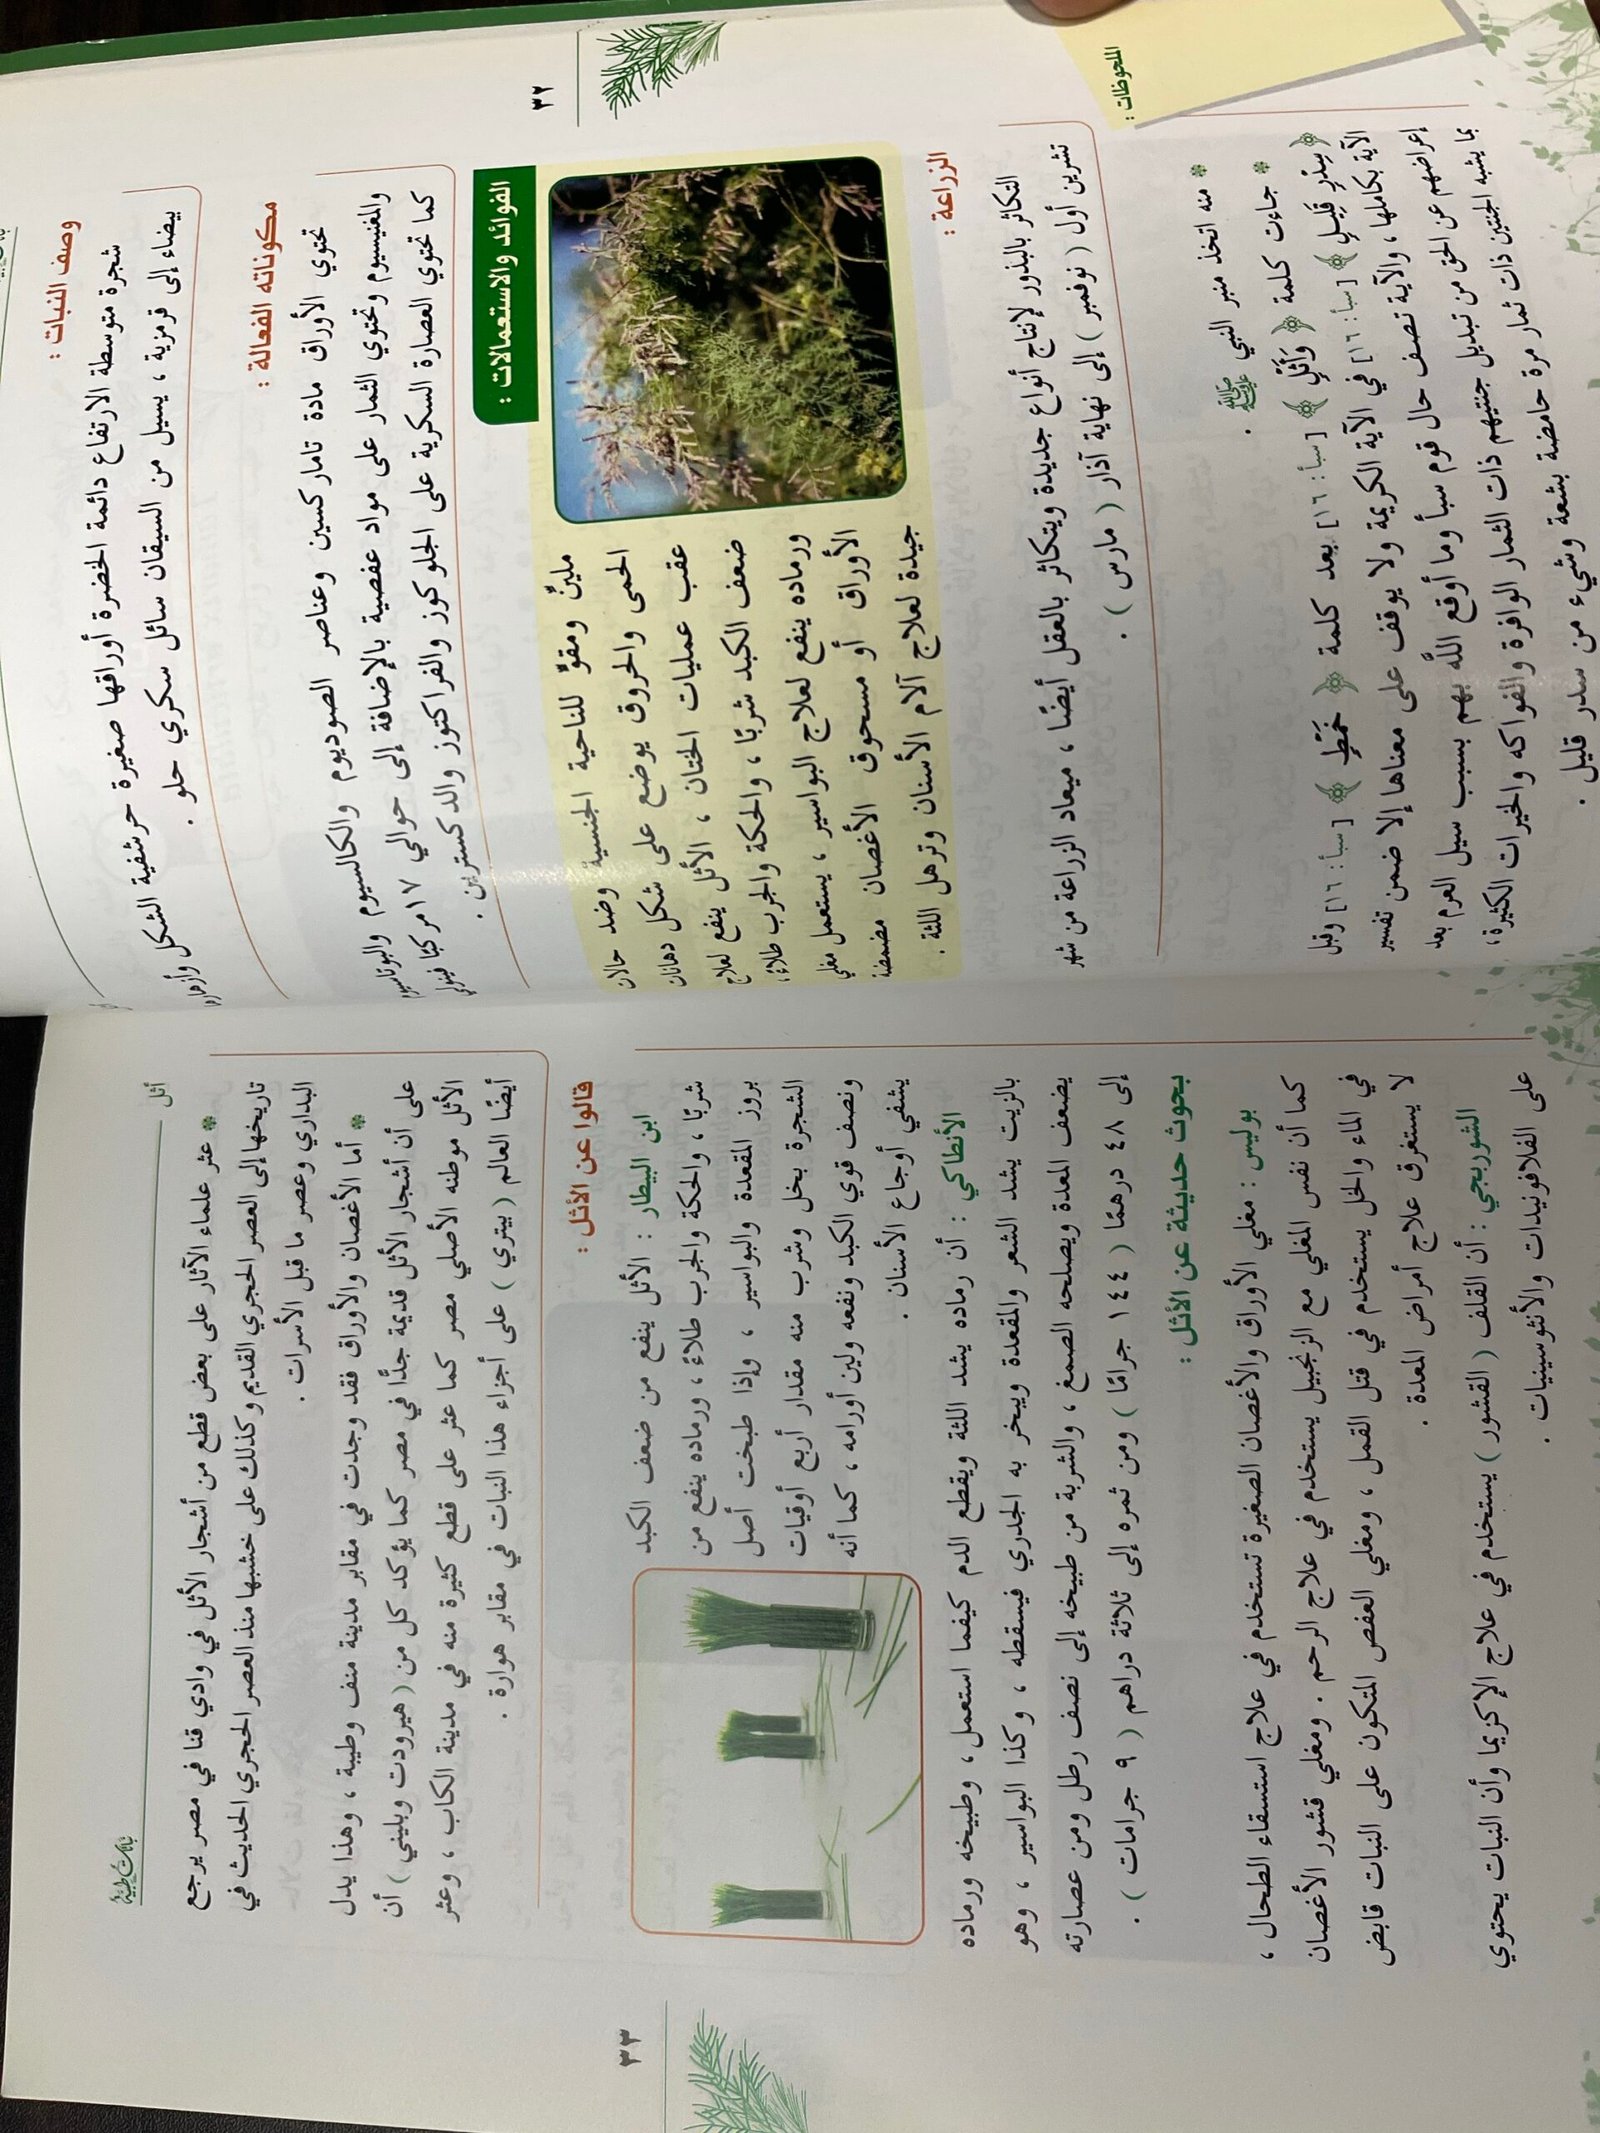 وصف النبات :
شجرة متوسطة الارتفاع دائمة الخضرة أوراقها صغيرة حرشفية الشكل وأزهاره
بيضاء إلى قرمزية ، يسيل من السيقان سائل سكري حلو .
مكوناته الفعالة :
تحتوي الأوراق مادة تاماركسين وعناصر الصوديوم والكالسيوم والبوتاسيوم
والمغنيسيوم وتحتوي الثمار على مواد عفصية بالإضافة إلى حوالي ١٧ مركبًا فينولي
كما تحتوي العصارة السكرية على الجلوكوز والفراكتوز والدكسترين .
الفوائد والاستعمالات :
ملينٌ ومقوٌّ للناحية الجنسية وضد حالات
الحمى والحروق يوضع على شكل دهانات
عقب عمليات الختان ، الأثل ينفع لعلاج
ضعف الكبد شربًا ، والحكة والجرب طلاءً ،
ورماده ينفع لعلاج البواسير ، يستعمل مغلي
الأوراق أو مسحوق الأغصان مضمضة
جيدة لعلاج آلام الأسنان وترهل اللثة .
الزراعة :
التكاثر بالبذور لإنتاج أنواع جديدة ويتكاثر بالعقل أيضًا ، ميعاد الزراعة من شهر
تشرين أول ( نوفمبر ) إلى نهاية آذار ( مارس ) .
الملحوظات :
* منه اتخذ منبر النبي ﷺ .
* جاءت كلمة ﴿ وَأَثْلٍ ﴾ [ سبأ : ١٦ ] بعد كلمة ﴿ خَمْطٍ ﴾ [ سبأ : ١٦ ] وقبل
﴿ سِدْرٍ قَلِيلٍ ﴾ [ سبأ : ١٦ ] في الآية الكريمة ولا يوقف على معناها إلا ضمن تفسير
الآية بكاملها ، والآية تصف حال قوم سبأ وما أوقع الله بهم بسبب سيل العرم بعد
إعراضهم عن الحق من تبديل جنتيهم ذات الثمار الوافرة والفواكه والخيرات الكثيرة ،
بما يشبه الجنتين ذات ثمار مرة حامضة بشعة وشيء من سدر قليل .
٣٢
أثل
نباتات طبية
* عثر علماء الآثار على بعض قطع من أشجار الأثل في وادي قنا في مصر يرجع
تاريخها إلى العصر الحجري القديم وكذلك على خشبها منذ العصر الحجري الحديث في
البداري وعصر ما قبل الأسرات .
* أما الأغصان والأوراق فقد وجدت في مقابر مدينة منف وطيبة ، وهذا يدل
على أن أشجار الأثل قديمة جدًّا في مصر كما يؤكد كل من ( هيرودت وبليني ) أن
الأثل موطنه الأصلي مصر كما عثر على قطع كثيرة منه في مدينة الكاب ، وعثر
أيضًا العالم ( بيتري ) على أجزاء هذا النبات في مقابر هوارة .
قالوا عن الأثل :
ابن البيطار : الأثل ينفع من ضعف الكبد
شربًا ، والحكة والجرب طلاءً ، ورماده ينفع من
بروز المقعدة والبواسير ، وإذا طبخت أصل
الشجرة بخل وشرب منه مقدار أربع أوقيات
ونصف قوي الكبد ونفعه ولين أورامه ، كما أنه
يشفي أوجاع الأسنان .
الأنطاكي : أن رماده يشد اللثة ويقطع الدم كيفما استعمل ، وطبيخه ورماده
بالزيت يشد الشعر والمقعدة ويبخر به الجدري فيسقطه ، وكذا البواسير ، وهو
يضعف المعدة ويصلحه الصمغ ، والشربة من طبيخه إلى نصف رطل ومن عصارته
إلى ٤٨ درهمًا ( ١٤٤ جرامًا ) ومن ثمره إلى ثلاثة دراهم ( ٩ جرامات ) .
بحوث حديثة عن الأثل :
بوليس : مغلي الأوراق والأغصان الصغيرة تستخدم في علاج استسقاء الطحال ،
كما أن نفس المغلي مع الزنجبيل يستخدم في علاج الرحم . ومغلي قشور الأغصان
في الماء والخل يستخدم في قتل القمل ، ومغلي العفص المتكون على النبات قابض
لا يستغرق علاج أمراض المعدة .
الشوربجي : أن القلف ( القشور ) يستخدم في علاج الإكزيما وأن النبات يحتوي
على الفلافونيدات والأنثوسينيات .
٣٣